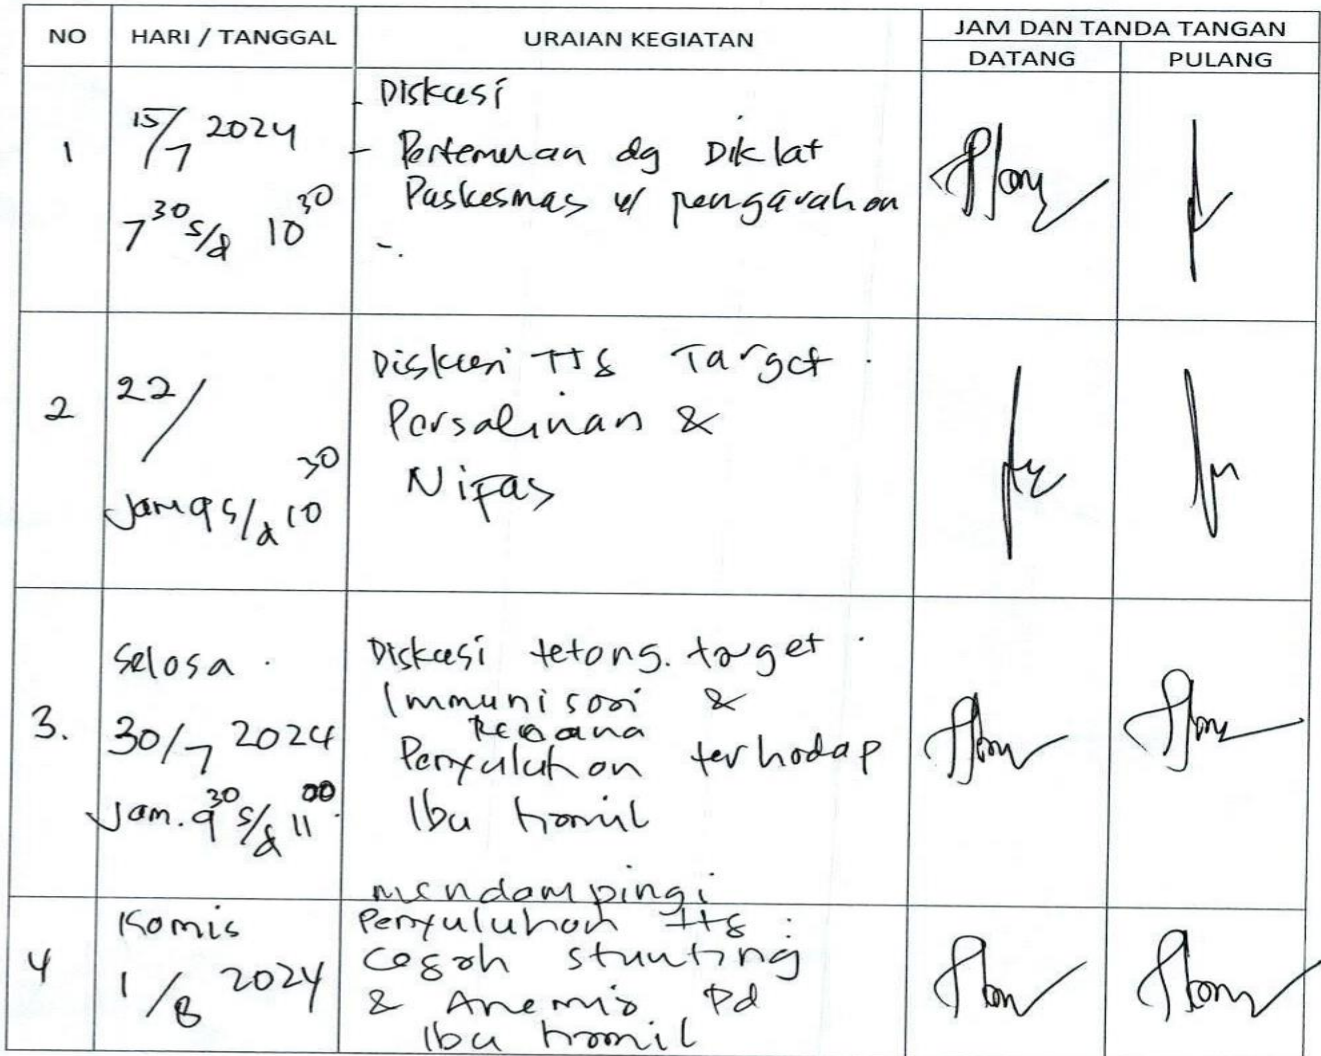 NO HARI / TANGGAL URAIAN KEGIATAN JAM DAN TANDA TANGAN
DATANG PULANG
1
15/7 2024
7 30 s/d 10 30
- Diskusi
- Pertemuan dg Diklat
Puskesmas u/ pengarahan
-.
2
22/
Jam 9 s/d 10 30
Diskusi ttg Target.
Persalinan &
Nifas
3.
Selasa.
30/7 2024
Jam. 9 30 s/d 11 00
Diskusi tetang. target.
Immunisasi &
Rencana
Penyuluhan terhadap
Ibu hamil
4
Kamis
1/8 2024
mendampingi
Penyuluhan ttg:
cegah stunting
& Anemia Pd
Ibu hamil